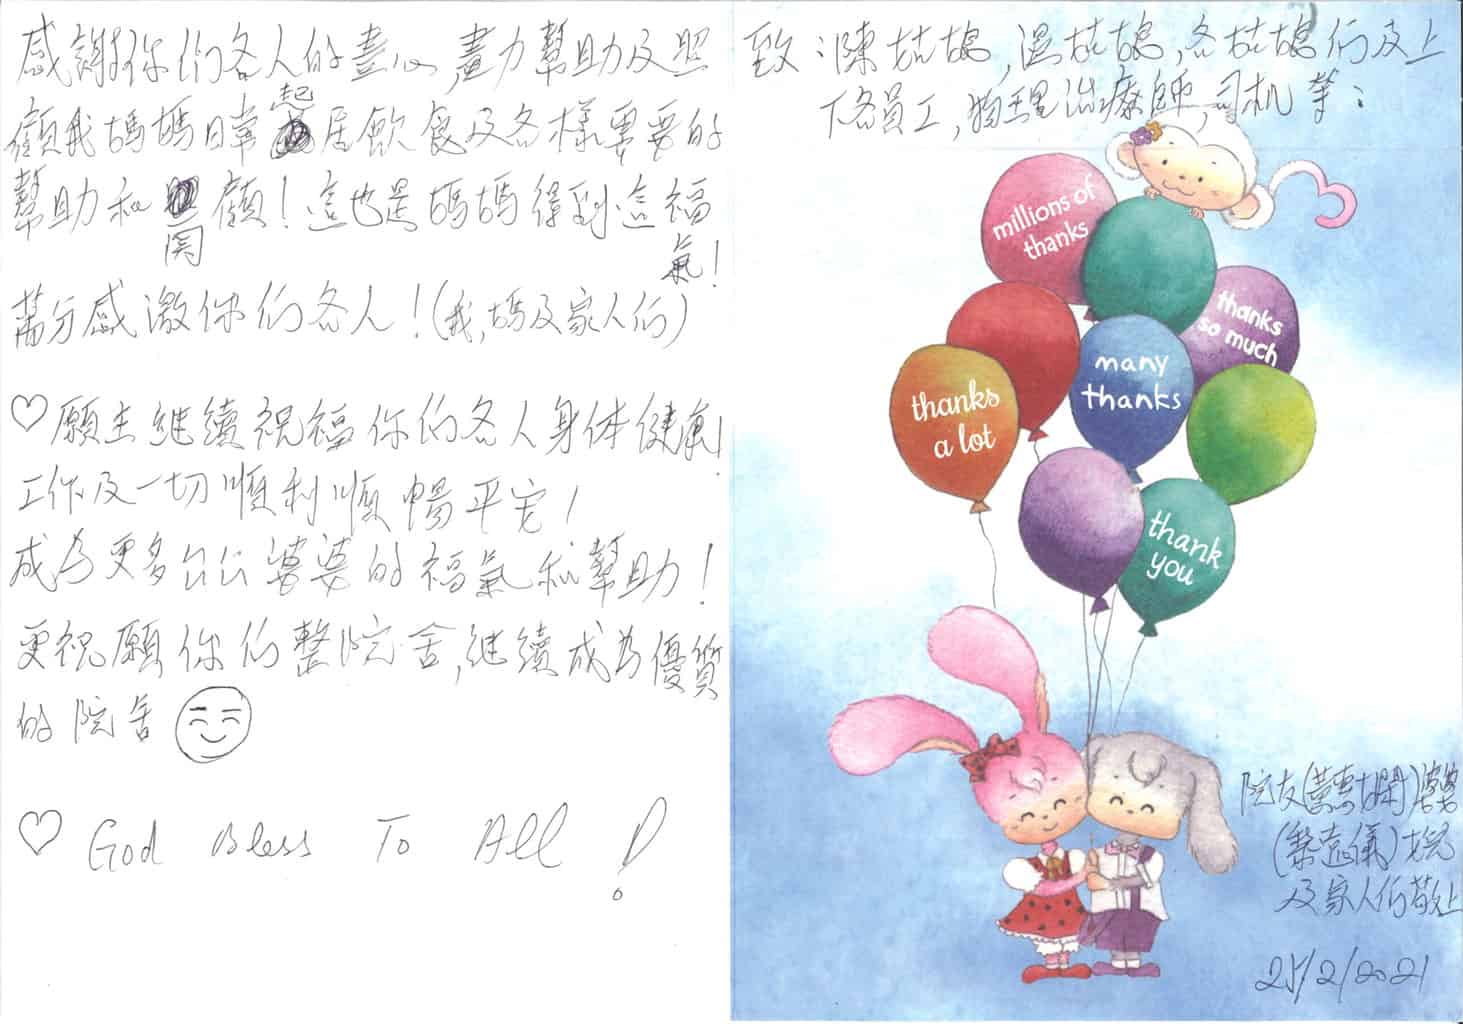 感謝你們各人的盡心,盡力幫助及照
顧我媽媽日常起居飲食及各樣需要的
幫助和関顧!這也是媽媽得到這福
氣!
萬分感激你們各人!(我,媽及家人們)
♡願主継續祝福你们各人身体健康!
工作及一切順利順暢平安!
成為更多公公婆婆的福氣和幫助!
更祝願你们整院舍,継續成為優質
的院舍
♡ God Bless To All !
致:陳姑娘,溫姑娘,各姑娘们及上
下各員工,物理治療師,司机等:
millions of
thanks
thanks
so much
many
thanks
thanks
a lot
thank
you
院友(黃惠嫻)婆婆
(黎嘉儀)女兒
及家人们敬上
25/2/2021